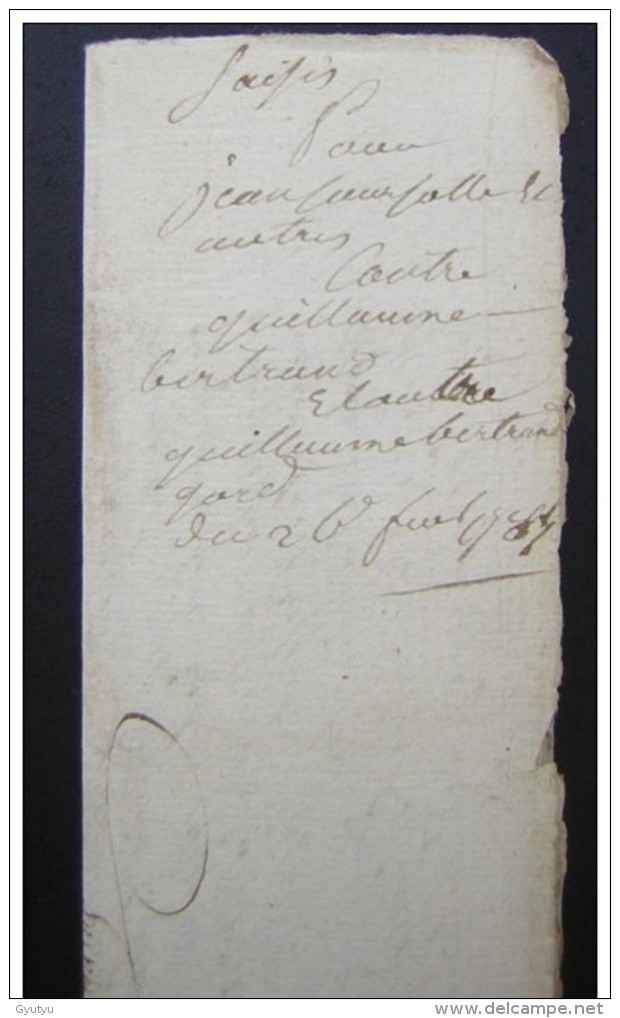 Saisis
Pour
jean et
autres
Contre
guillaume
bertrand
Et autre
guillaume bertrand
gard
du 26
Gyutyu
www.delcampe.net